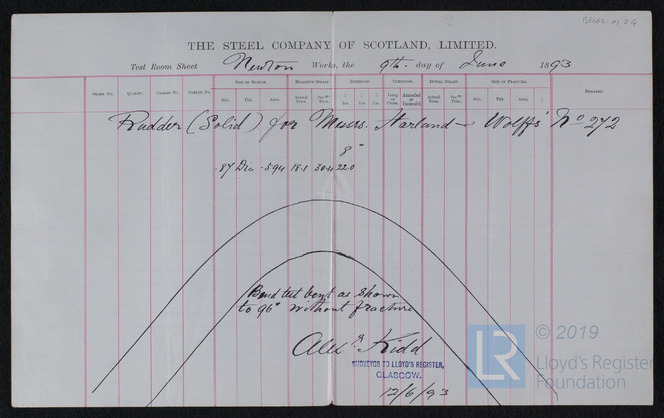 BRL62-0124
THE STEEL COMPANY OF SCOTLAND, LIMITED.
Test Room Sheet Newton Works, the 9th. day of June 1893
SIZE OF SAMPLE. BREAKING STRAIN. EXTENSION. CONDITION. INITIAL STRAIN. SIZE OF FRACTURE.
ORDER NO. QUALITY. CHARGE NO. SAMPLE NO. Brt. Thk. Area. Actual Tons. Per □" Tons. Ins. Ins. Ins. Long or Cross. Annealed or Unanneal'd. Actual Tons. Per □" Tons. Brt. Thk. Area. REMARKS.
Rudder (Solid) for Messrs. Harland & Wolff's No 272
8"
.87 Dia .594 18.1 30.4 22.0
Bend test bent as shown
to 96° without fracture
Alexr Kidd
SURVEYOR TO LLOYD'S REGISTER,
GLASGOW.
12/6/93
LR
© 2019
Lloyd's Register
Foundation